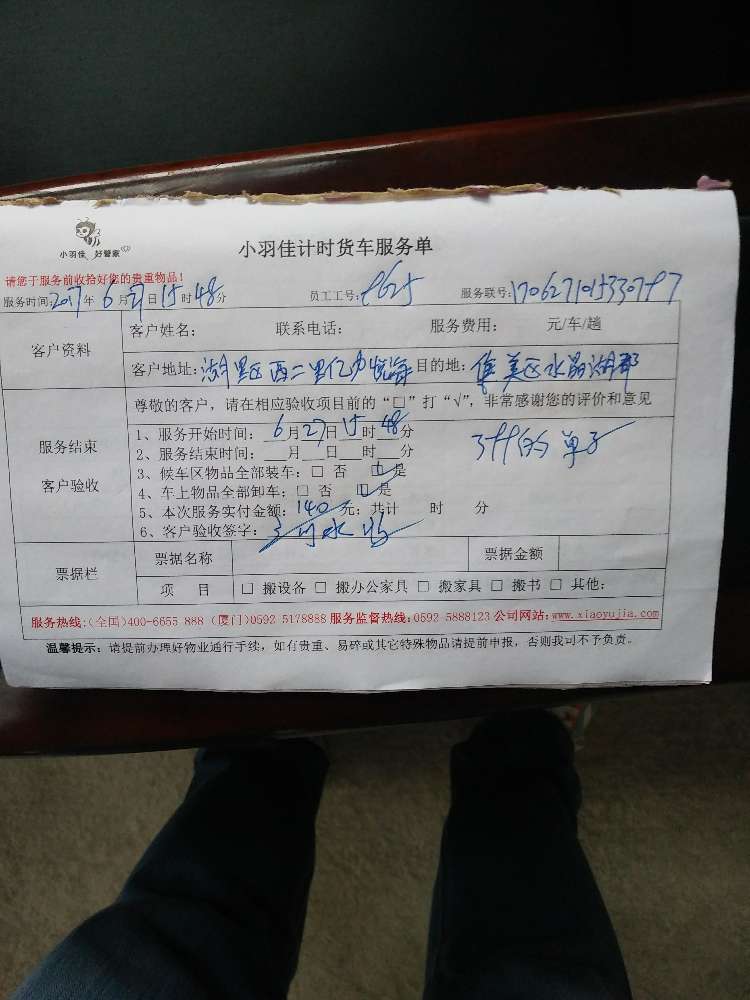 小羽佳 好管家
小羽佳计时货车服务单
请您于服务前收拾好您的贵重物品!
服务时间:2017年6月27日15时48分 员工工号: 服务联号:
客户资料
客户姓名: 联系电话: 服务费用: 元/车/趟
客户地址:湖里区西二里 目的地:集美区水晶湖郡
服务结束
客户验收
尊敬的客户,请在相应验收项目前的“□”打“√”,非常感谢您的评价和意见
1、服务开始时间:6月27日15时48分
2、服务结束时间:___月___日___时___分
的单子
3、候车区物品全部装车:□ 否 ☑是
4、车上物品全部卸车:□ 否 ☑是
5、本次服务实付金额:140元;共计 时 分
6、客户验收签字:
票据栏
票据名称 票据金额
项 目 □ 搬设备 □ 搬办公家具 □ 搬家具 □ 搬书 □ 其他:
服务热线:(全国)400-6655 888 (厦门)0592 5178888 服务监督热线:0592 5888123 公司网站:www.xiaoyujia.com
温馨提示:请提前办理好物业通行手续,如有贵重、易碎或其它特殊物品请提前申报,否则我司不予负责。